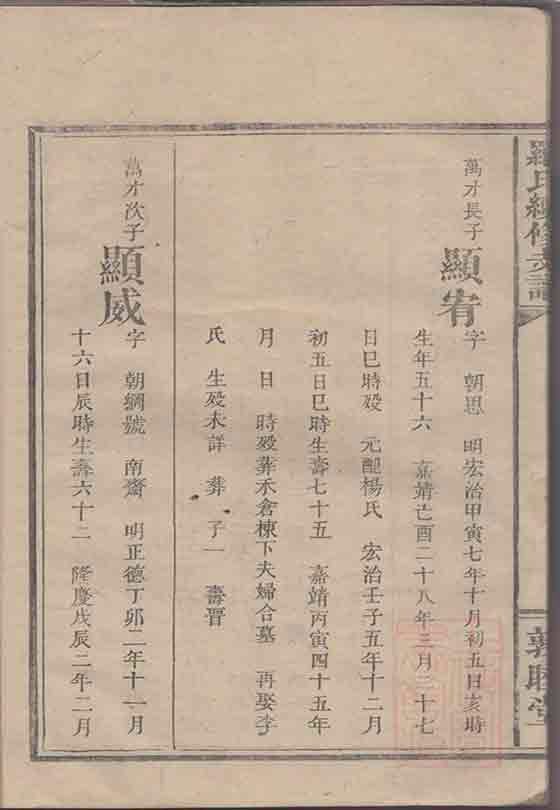 羅氏續修支譜
敦睦堂
萬才長子
顯宥
字 朝思 明宏治甲寅七年十月初五日亥時
生年五十六 嘉靖亡酉二十八年三月二十七
日巳時殁 元配楊氏 宏治壬子五年十二月
初五日巳時生壽七十五 嘉靖丙寅四十五年
月 日 時殁葬禾倉棟下夫婦合墓 再娶李
氏 生殁未詳 葬 子一 壽晋
萬才次子
顯威
字 朝綱號 南齋 明正德丁卯二年十一月
十六日辰時生壽六十二 隆慶戊辰二年二月